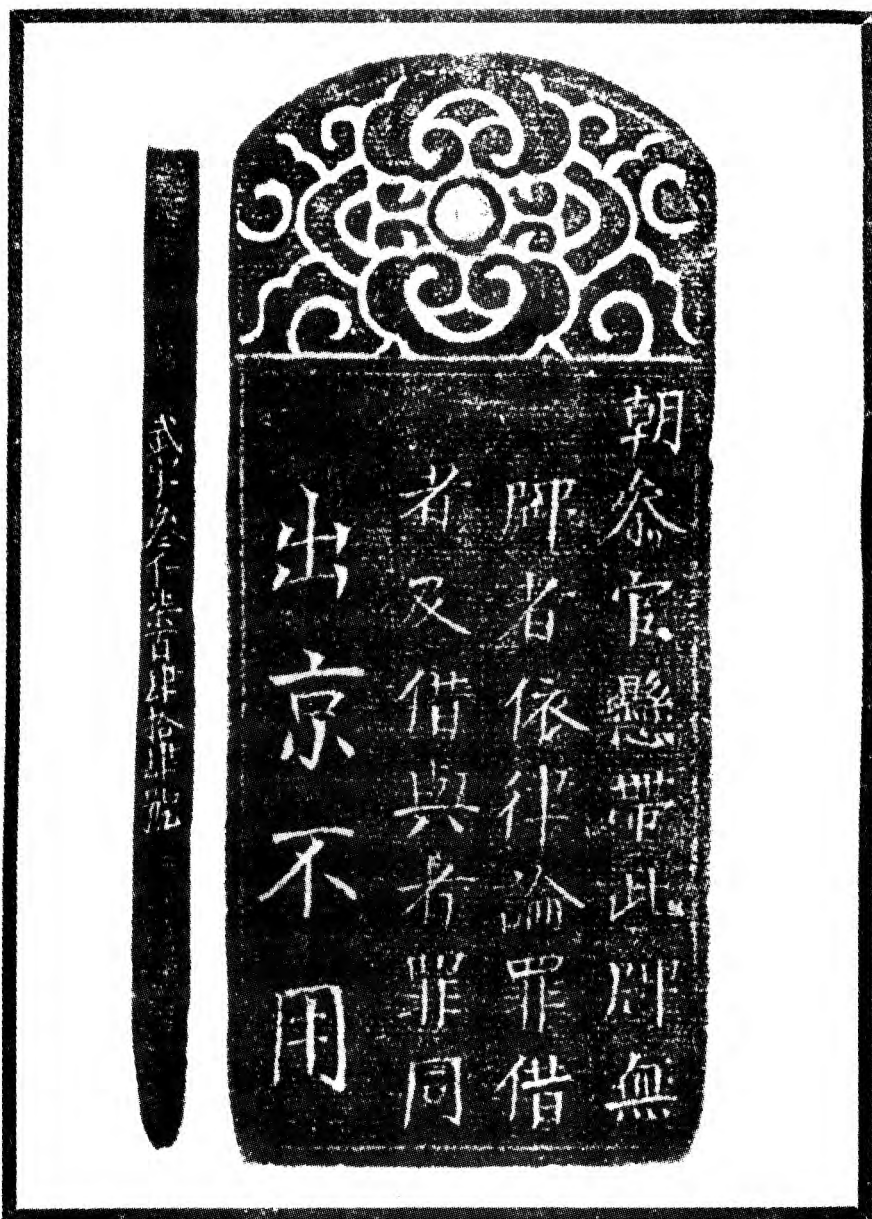 朝叅官懸帶此牌無
牌者依律論罪借
者及借與者罪同
出京不用
武字叁仟柒百肆拾肆號